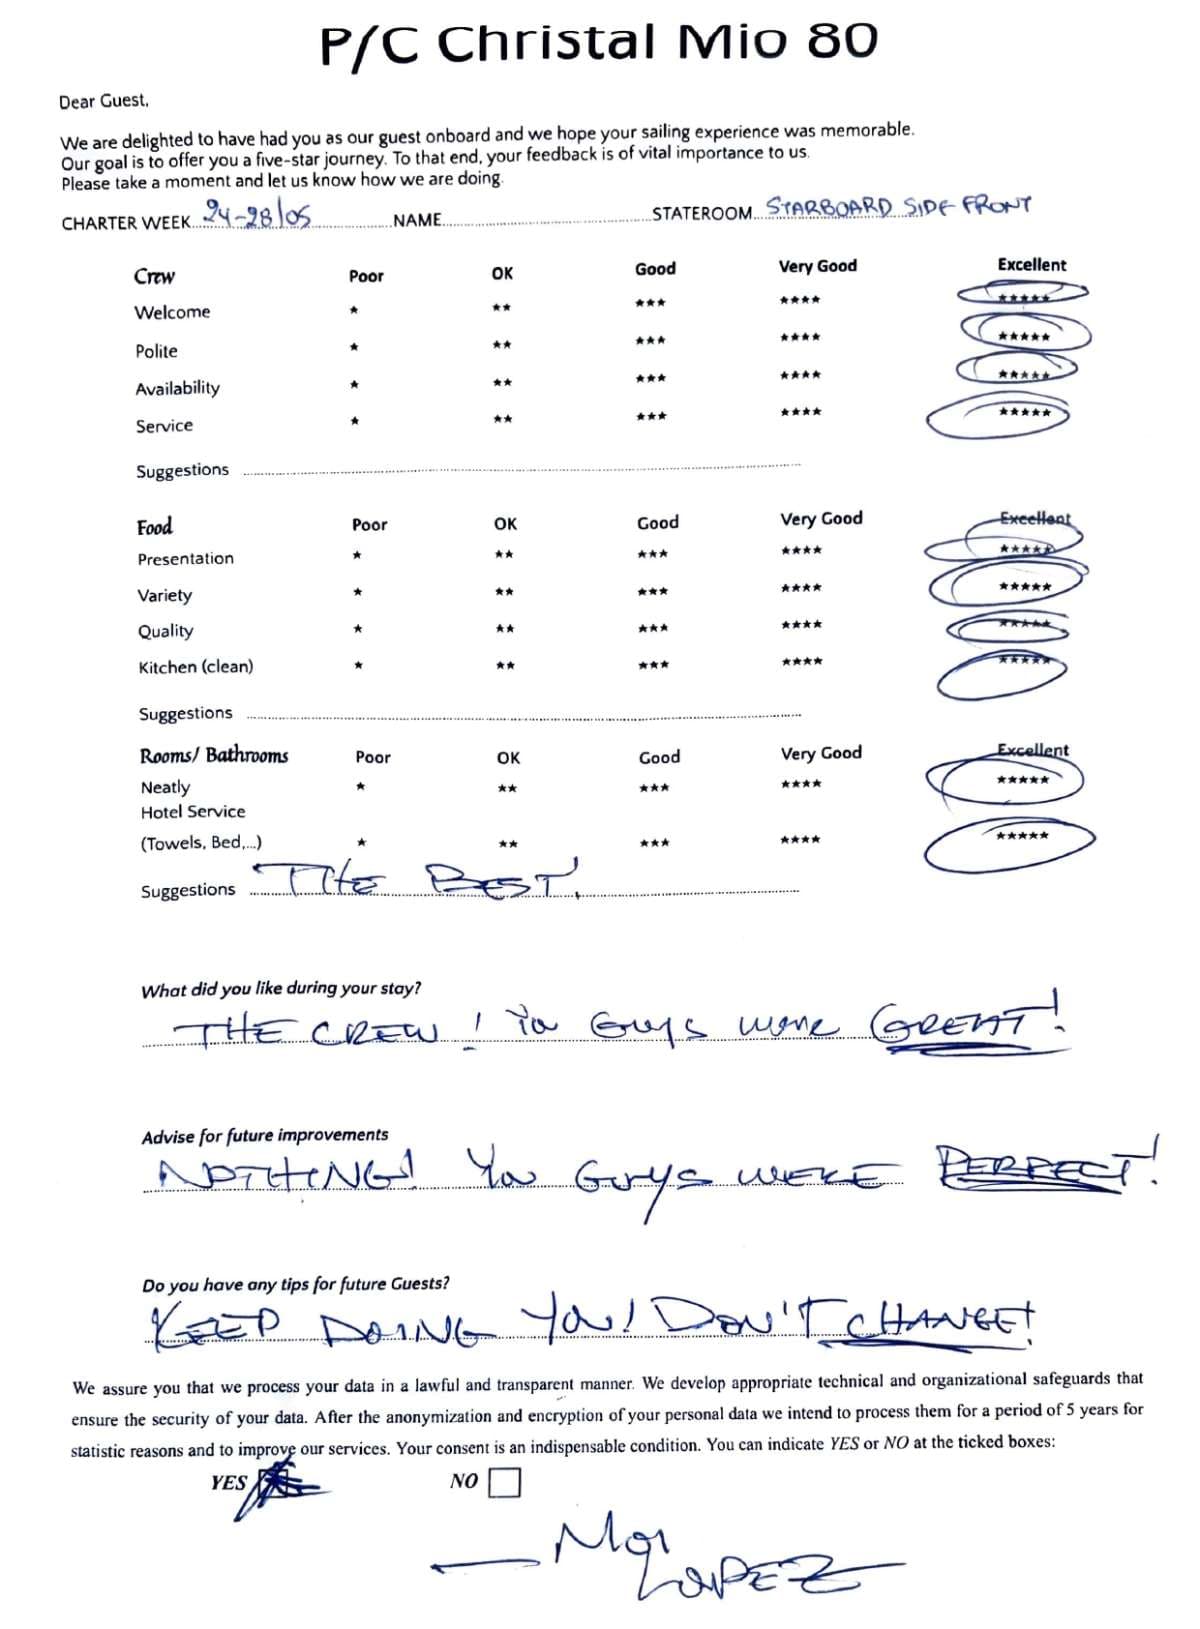 P/C Christal Mio 80
Dear Guest,
We are delighted to have had you as our guest onboard and we hope your sailing experience was memorable.
Our goal is to offer you a five-star journey. To that end, your feedback is of vital importance to us.
Please take a moment and let us know how we are doing.
CHARTER WEEK 24-28/05 NAME STATEROOM STARBOARD SIDE FRONT
Crew Poor OK Good Very Good Excellent
Welcome * ** *** **** *****
Polite * ** *** **** *****
Availability * ** *** **** *****
Service * ** *** **** *****
Suggestions
Food Poor OK Good Very Good Excellent
Presentation * ** *** **** *****
Variety * ** *** **** *****
Quality * ** *** **** *****
Kitchen (clean) * ** *** **** *****
Suggestions
Rooms/ Bathrooms Poor OK Good Very Good Excellent
Neatly * ** *** **** *****
Hotel Service
(Towels, Bed,...) * ** *** **** *****
Suggestions THE BEST.
What did you like during your stay?
THE CREW! You Guys were GREAT!
Advise for future improvements
NOTHING! You Guys WERE PERFECT!
Do you have any tips for future Guests?
KEEP DOING YOU! DON'T CHANGE!
We assure you that we process your data in a lawful and transparent manner. We develop appropriate technical and organizational safeguards that
ensure the security of your data. After the anonymization and encryption of your personal data we intend to process them for a period of 5 years for
statistic reasons and to improve our services. Your consent is an indispensable condition. You can indicate YES or NO at the ticked boxes:
YES NO
LOPEZ